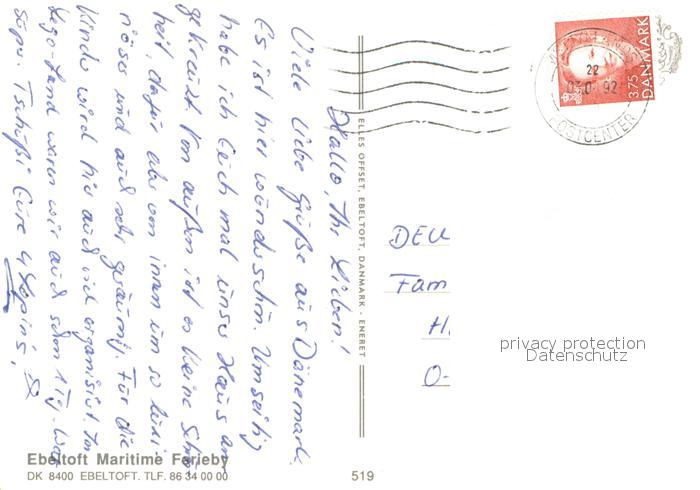 Hallo, Ihr Lieben!
Viele liebe Grüße aus Dänemark.
Es ist hier wunderschön. Umseitig
habe ich Euch mal unser Haus an-
gekreuzt. Von außen ist es keine Schön-
heit, dafür aber von innen um so
und auch sehr geräumig. Für die
Kinder wird hier auch viel organisiert. Im
Lego-Land waren wir auch schon 1 Tg. War
super. Tschüßi Eure 4
ELLES OFFSET, EBELTOFT, DANMARK - ENERET
Ebeltoft Maritime Ferieby
DK 8400 EBELTOFT. TLF. 86 34 00 00
519
22
92
POSTCENTER
3.75 DANMARK
DEU
Fam
H.
O-
privacy protection
Datenschutz